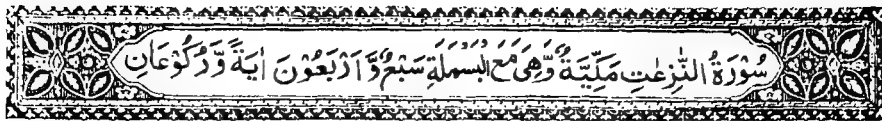 سُوْرَةُ النّٰزِعٰتِ مَكِّيَّةٌ وَّهِىَ مَعَ الْبَسْمَلَةِ سَبْعٌ وَّاَرْبَعُوْنَ اٰيَةً وَّرُكُوْعَانِ